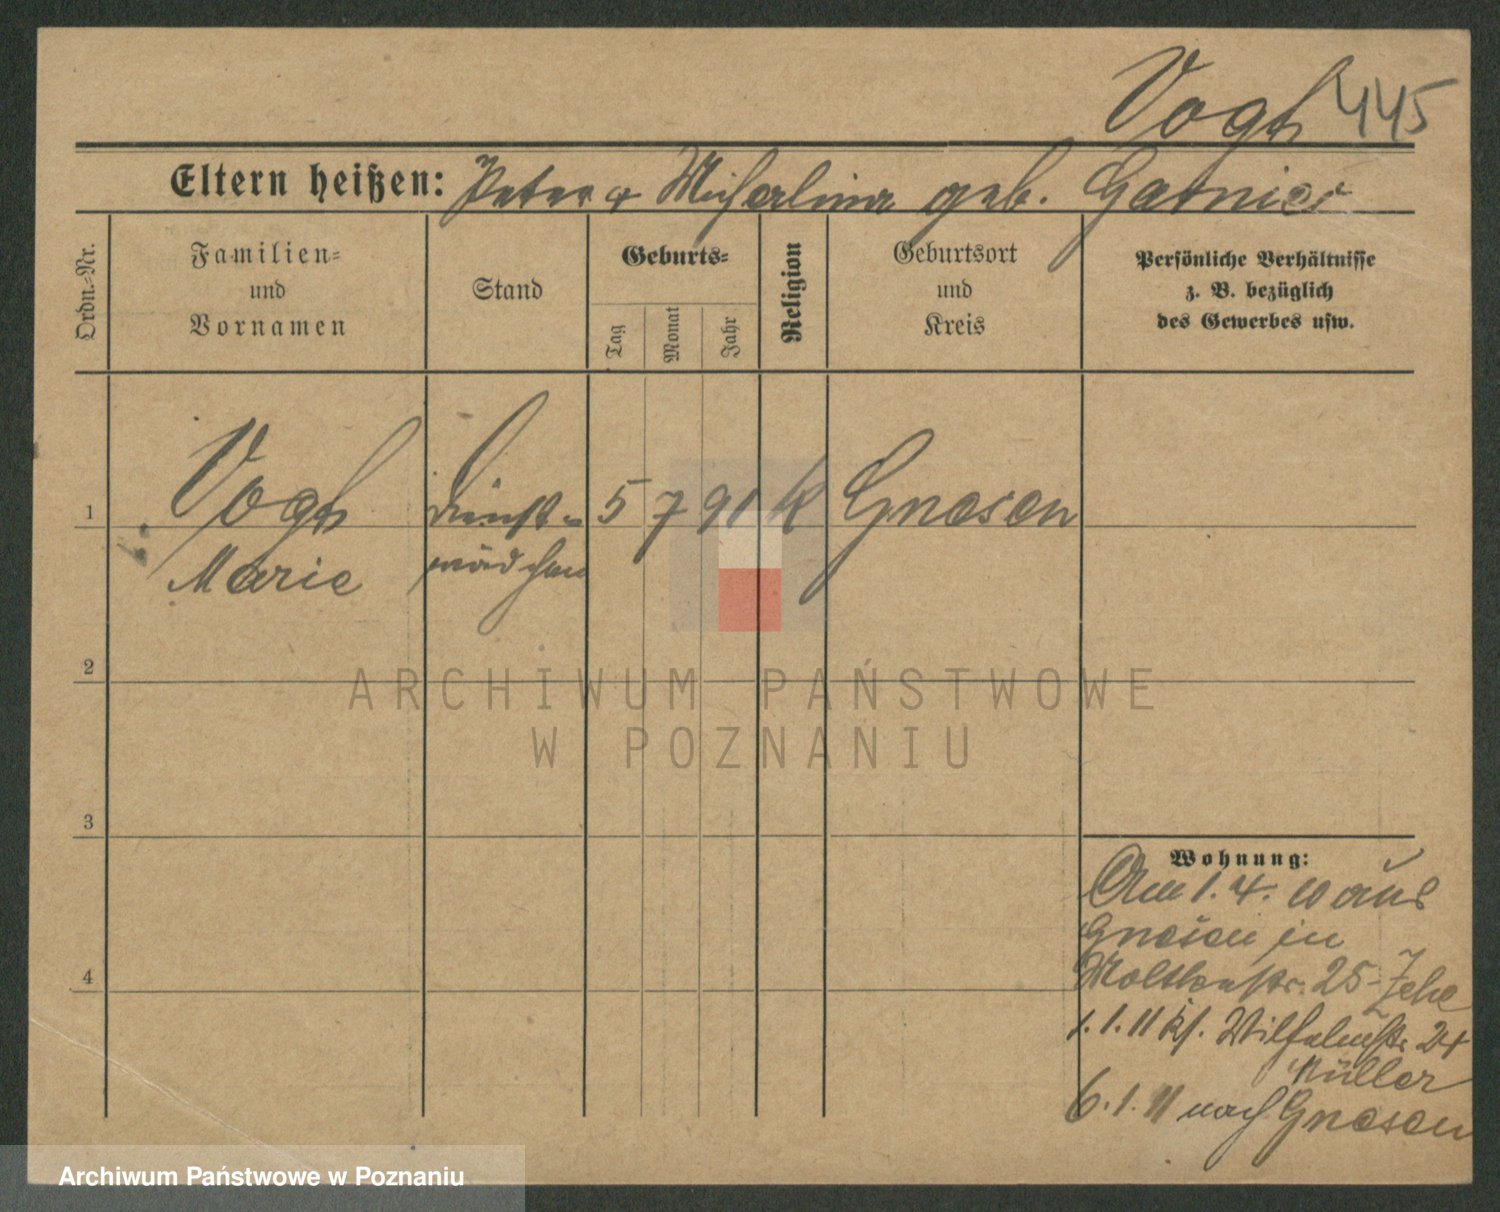 Vogt 445
Eltern heißen: Peter u Michalina geb.
Ordn.-Nr.
Familien-
und
Vornamen
Stand
Geburts-
Tag
Monat
Jahr
Religion
Geburtsort
und
Kreis
Persönliche Verhältnisse
z. B. bezüglich
des Gewerbes usw.
1
Vogt
Marie
Dienst-
mädchen
5 7 91 K Gnesen
2
3
4
Wohnung:
Am 1. 4. 10 aus
Gnesen in
Moltkestr. 25
1. 1. 11 Wilhelmstr. 24
Müller
6. 1. 11 nach Gnesen
ARCHIWUM PAŃSTWOWE
W POZNANIU
Archiwum Państwowe w Poznaniu